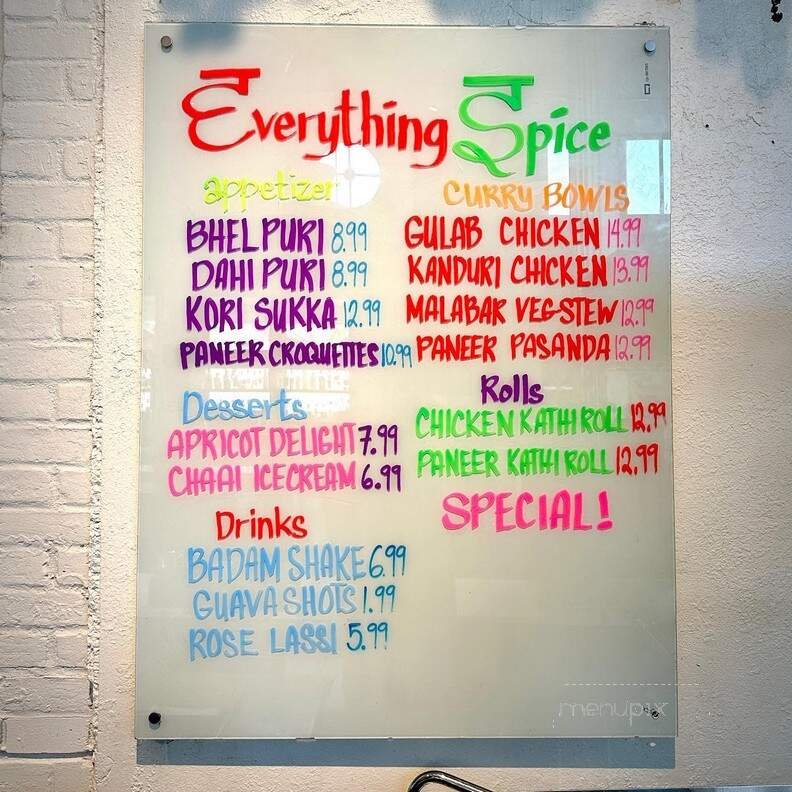 Everything Spice
appetizer
BHEL PURI 8.99
DAHI PURI 8.99
KORI SUKKA 12.99
PANEER CROQUETTES 10.99
Desserts
APRICOT DELIGHT 7.99
CHAAI ICECREAM 6.99
Drinks
BADAM SHAKE 6.99
GUAVA SHOTS 1.99
ROSE LASSI 5.99
CURRY BOWLS
GULAB CHICKEN 14.99
KANDURI CHICKEN 13.99
MALABAR VEG-STEW 12.99
PANEER PASANDA 12.99
Rolls
CHICKEN KATHI ROLL 12.99
PANEER KATHI ROLL 12.99
SPECIAL!
menupix